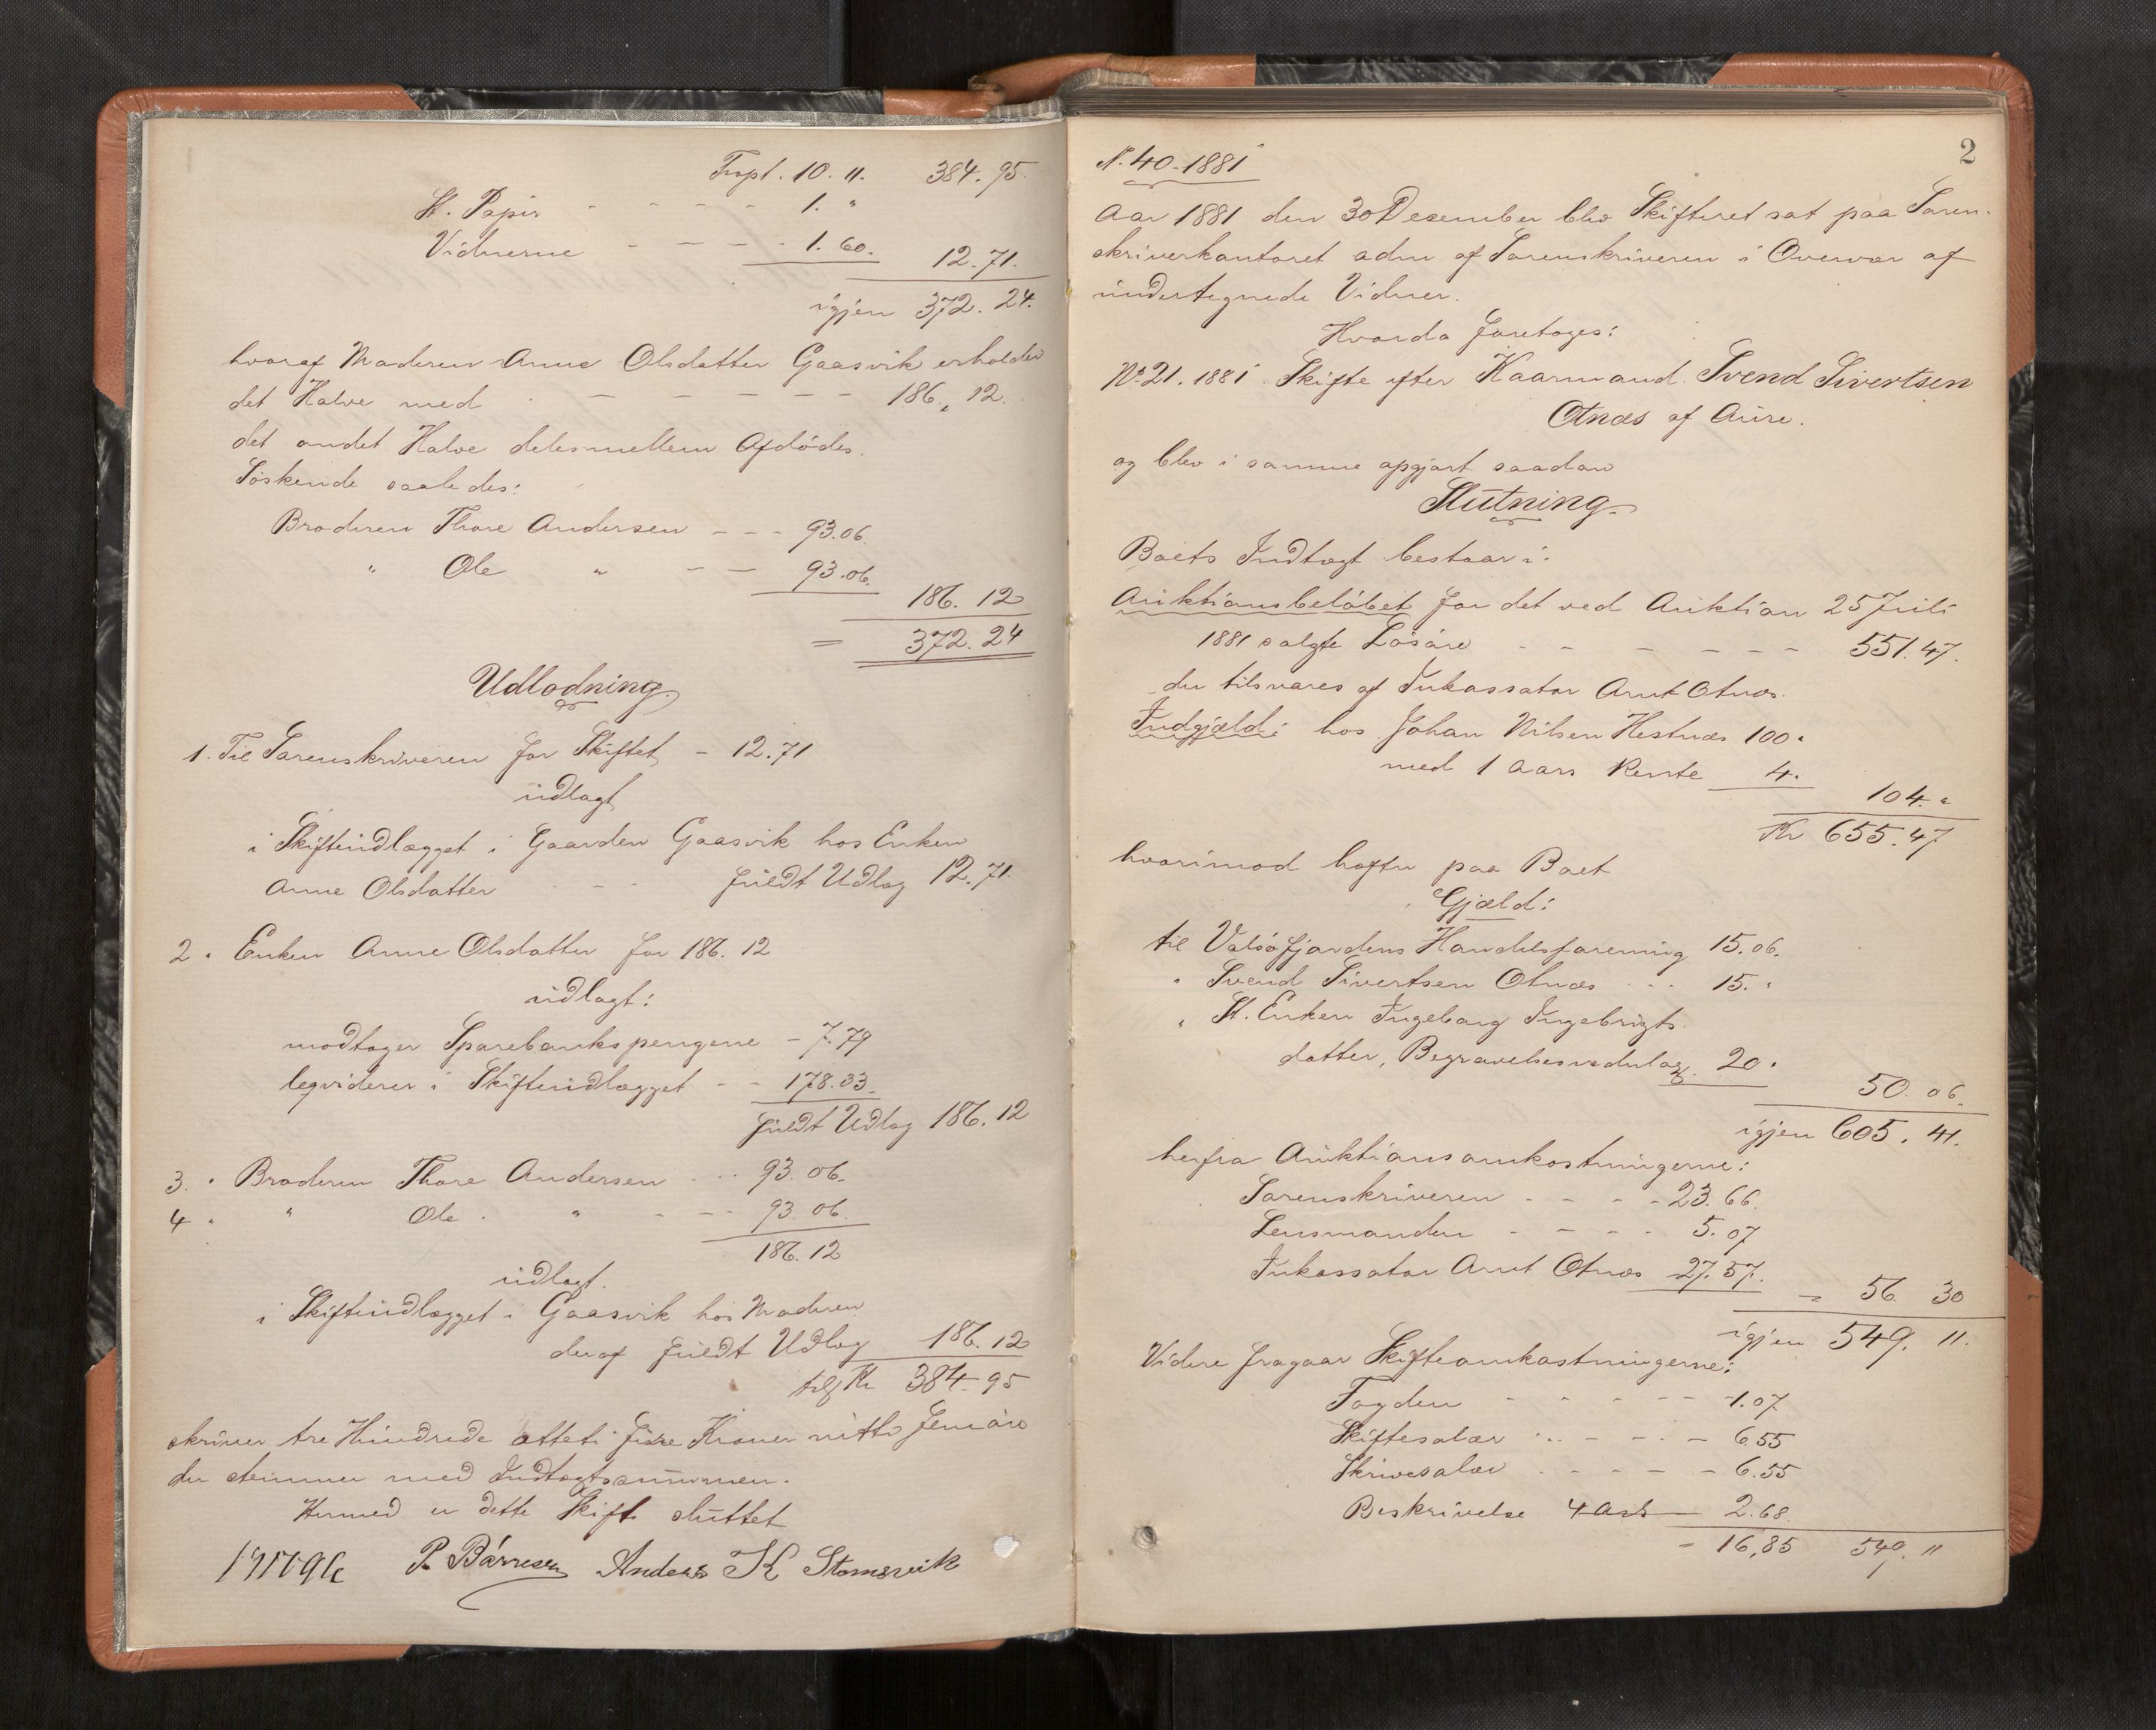 Trspt. 10. 11. 384. 95.
St. Papir - - - - - 1. "
Vidnerne - - - - 1. 60. 12. 71.
igjen 372. 24.
hvoraf Moderen Anne Olsdatter Gaasvik erholder
det Halve med - - - - - - 186. 12.
det andet Halve deles mellem Afdødes
Søskende saaledes:
Broderen Thore Andersen - - - 93.06.
" Ole " - - 93.06.
186. 12
= 372. 24
Udlodning
1. Til Sorenskriveren for Skiftet - 12.71
udlagt
i Skifteudlægget i Gaarden Gaasvik hos Enken
Anne Olsdatter - - fuldt Udlæg 12.71.
2 " Enken Anne Olsdatter for 186. 12
udlagt:
modtager Sparebankspengene - 7.79
leqviderer i Skifteudlægget - - 178.33.
fuldt Udlæg 186. 12
3. " Broderen Thore Andersen - - - 93. 06.
4 " " Ole " - - - 93. 06.
186. 12
udlagt.
i Skifteudlægget i Gaasvik hos Moderen
deraf fuldt Udlæg 186. 12
Kr 384. 95
skriver tre Hundrede otteti fire Kroner nitti fem øre
der stemmer med Indtægtssummen.
Hermed er dette Skifte sluttet
P. Børresen Anders K Stomsvik
2
N. 40-1881
Aar 1881 den 30 Desember blev Skifteret sat paa Soren-
skriverkontoret adm af Sorenskriveren i Overvær af
undertegnede Vidner.
Hvorda foretoges:
No 21. 1881 Skifte efter Kaarmand Svend Sivertsen
Otnæs af Aure.
og blev i samme opgjort saadan
Slutning
Boets Indtægt bestaar i:
Auktionsbeløbet for det ved Auktion 25 Juli
1881 solgte Løsøre - - - - - - 551.47.
der tilsvares af Inkassator Arnt Otnæs.
Indgjæld: hos Johan Nilsen Hestnæs 100 "
med 1 Aars Rente 4.
104. "
Kr 655.47
hvorimod hefter paa Boet
Gjæld:
til Valsøfjordens Handelsforening 15.06.
" Svend Sivertsen Otnæs - - - 15. "
" St. Enken Ingeborg Ingebrigts-
datter, Begravelsesvederlag. 20 "
50. 06.
igjen 605. 41.
herfra Auktionsomkostningerne:
Sorenskriveren - - - - 23.66.
Lensmanden - - - - 5.07
Inkassator Arnt Otnæs 27.57.
- 56. 30
igjen 549. 11.
Videre fragaar Skifteomkostningerne:
Fogden - - - - - - 1.07
Skiftesalær - - - - - 6.55
Skrivesalær - - - - - 6.55
Beskrivelse 4 Ark - 2.68.
- 16,85 549. 11